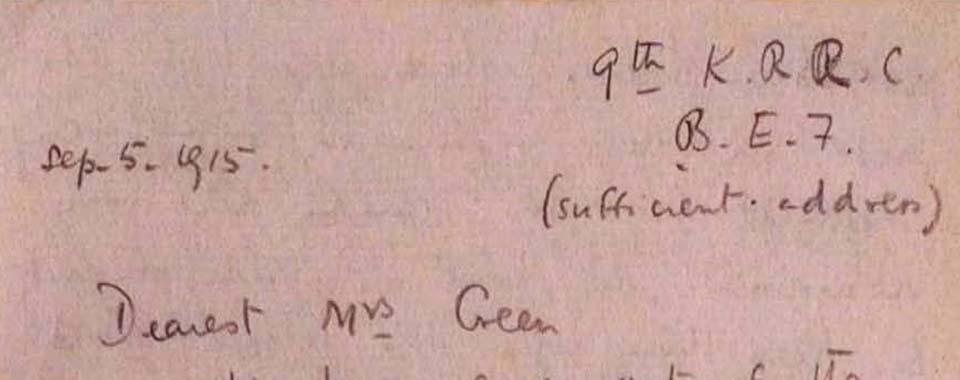 9th K.R.R.C.
B.E.F.
Sep. 5. 1915.
(sufficient address)
Dearest Mrs Green